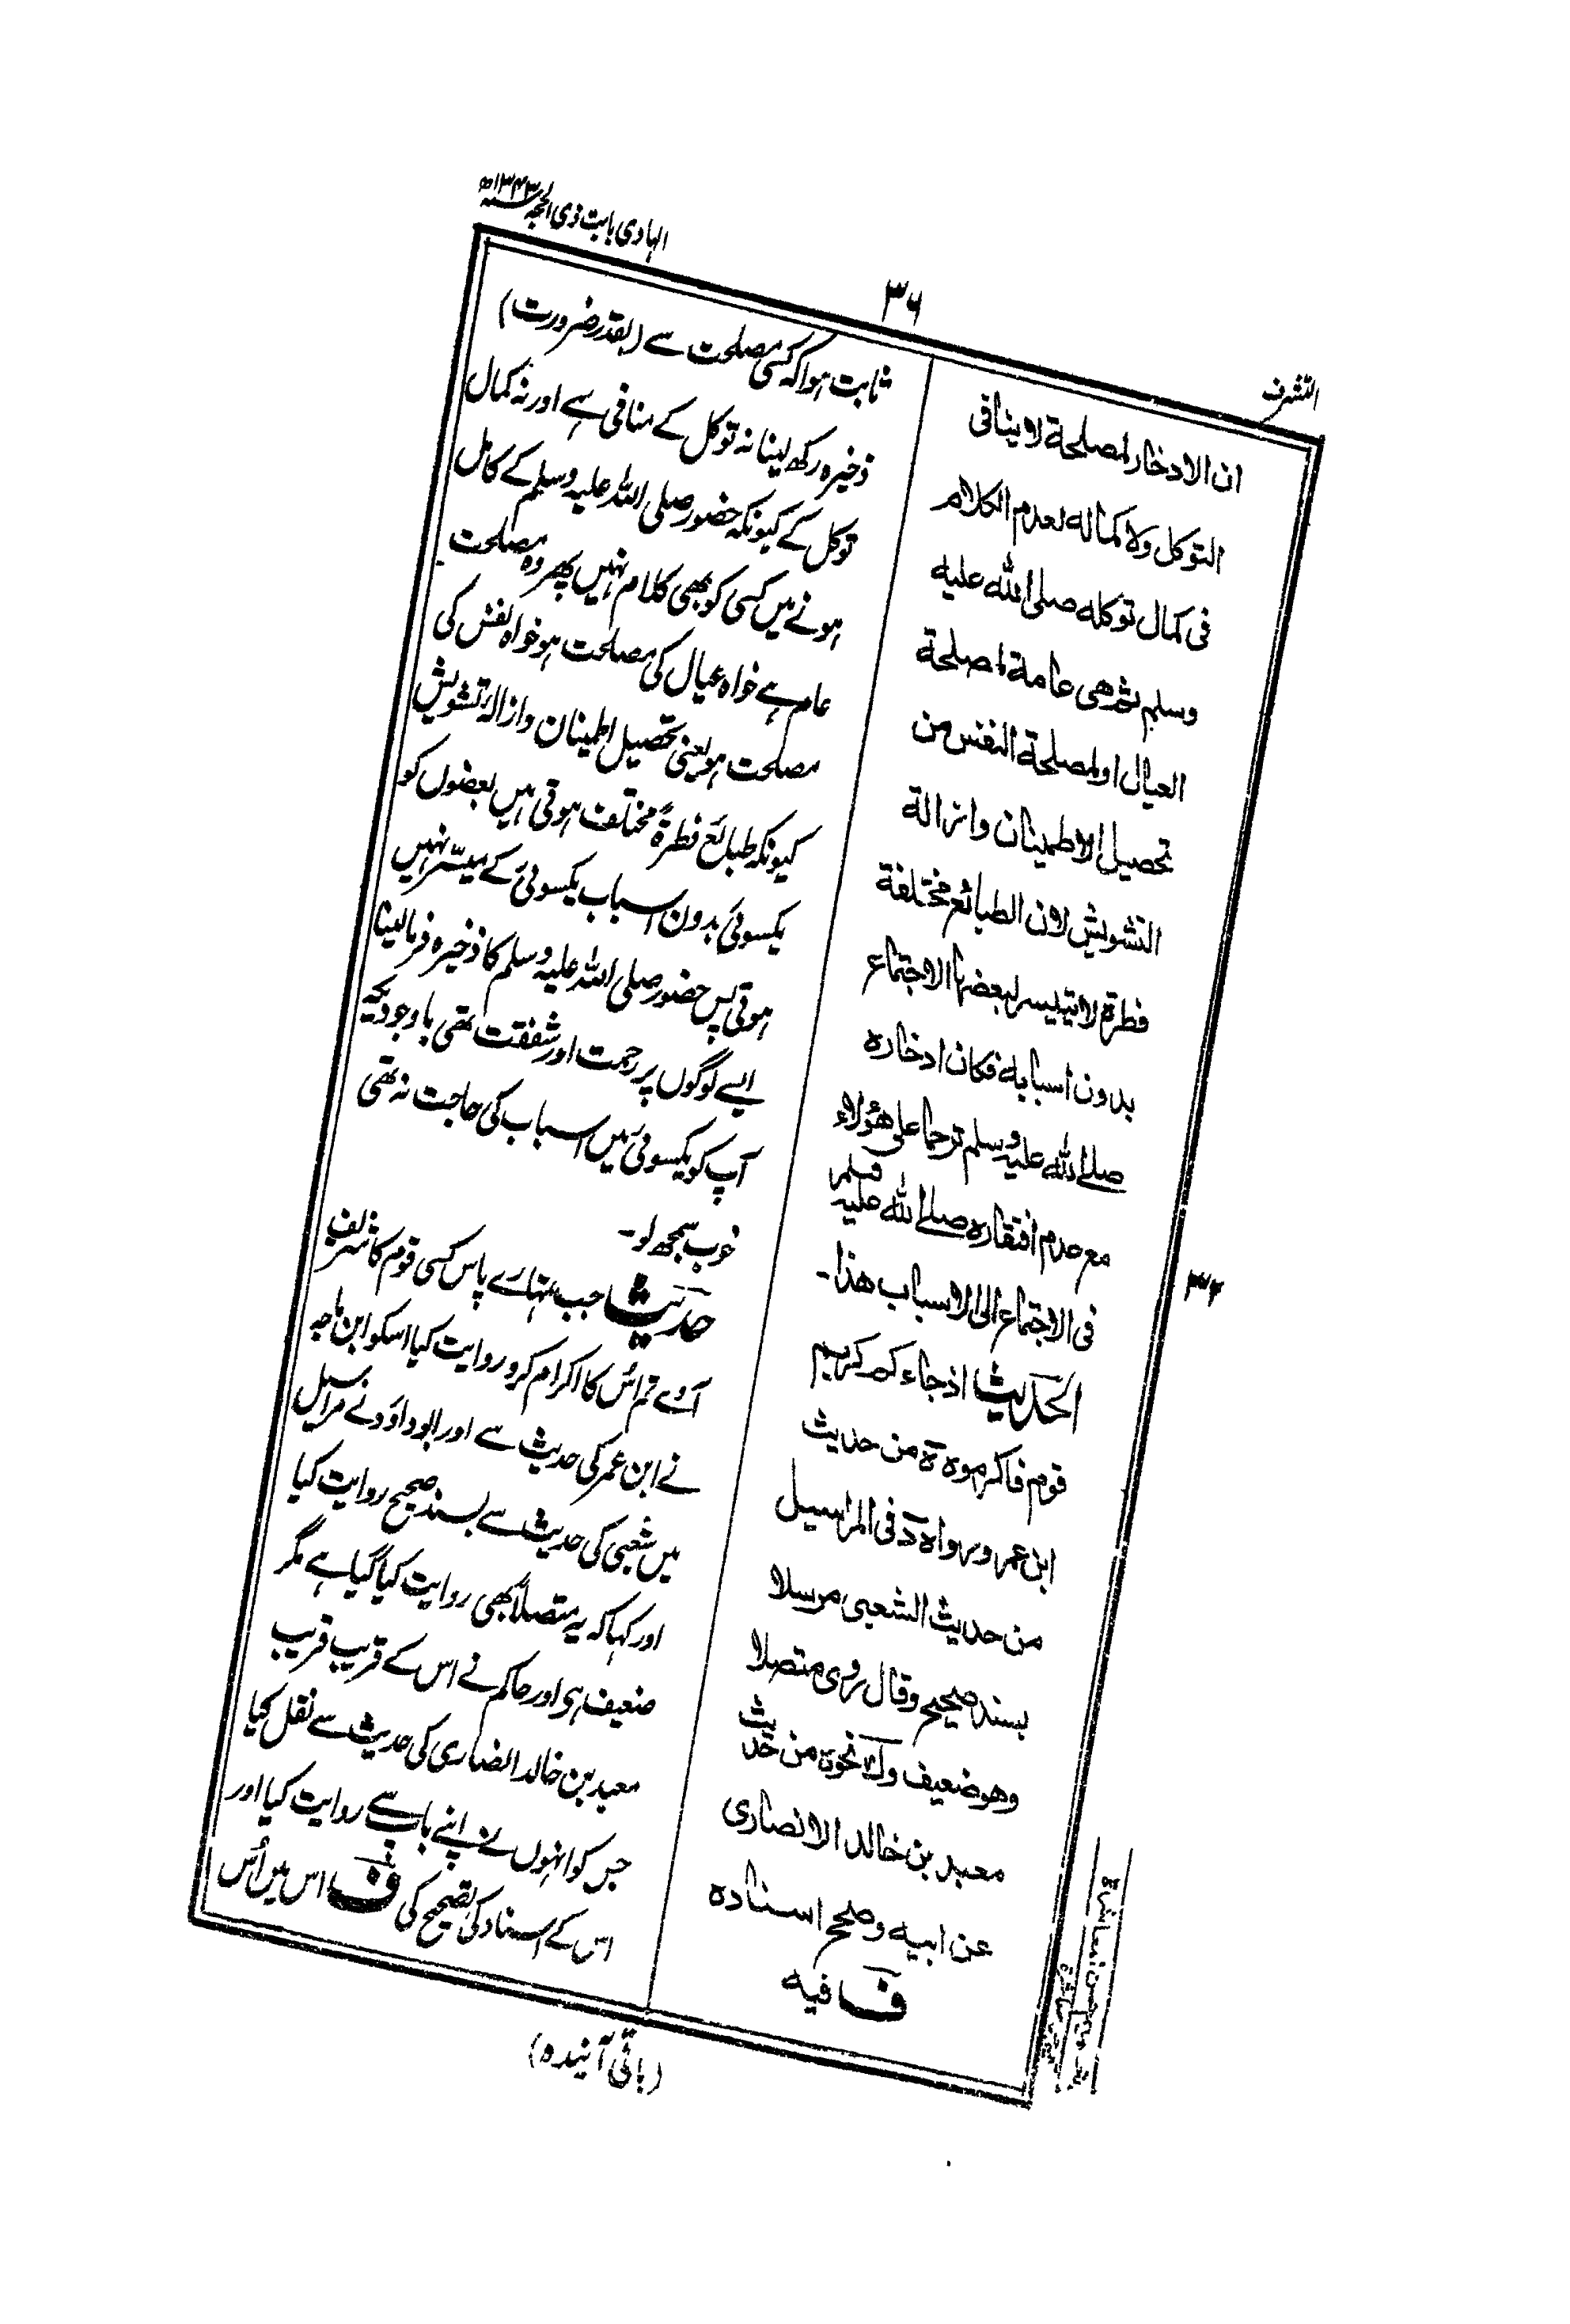 التشرف
۳۶
الہادی بابت ذی الحجہ ۱۳۴۳ھ
ان الادخار لمصلحة لا ینافی
التوکل ولا کماله لعدم الکلام
فی کمال توکله صلی الله علیه
وسلم ثم هی عامة لمصلحة
العیال او لمصلحة النفس من
تحصیل الاطمینان وازالة
التشویش لان الطبائع مختلفة
فطرة لا یتیسر لبعضها الاجتماع
بدون اسبابه فکان ادخاره
صلے الله علیه وسلم ترحما علی هؤلاء
مع عدم افتقاره صلے الله علیه وسلم
فی الاجتماع الی الاسباب هذا۔
الحدیث اذ جاءکم کریم
قوم فاکرموه ة من حدیث
ابن عمر ورواه د فی المراسیل
من حدیث الشعبی مرسلا
بسند صحیح وقال روی متصلا
وهو ضعیف وك نحوه من حدیث
معبد بن خالد الانصاری
عن ابیه وصحح اسناده
ف فیه
ثابت ہوا کہ کسی مصلحت سے (بقدر ضرورت)
ذخیرہ رکھ لینا نہ توکل کے منافی ہے اور نہ کمال
توکل کے کیونکہ حضور صلی اللہ علیہ وسلم کے کامل
ہونے میں کسی کو بھی کلام نہیں پھر وہ مصلحت
عام ہے خواہ عیال کی مصلحت ہو خواہ نفس کی
مصلحت ہو یعنی تحصیل اطمینان و ازالۂ تشویش
کیونکہ طبائع فطرۃً مختلف ہوتی ہیں بعضوں کو
یکسوئی بدون اسباب یکسوئی کے میسّر نہیں
ہوتی پس حضور صلی اللہ علیہ وسلم کا ذخیرہ فرما لینا
ایسے لوگوں پر رحمت اور شفقت تھی باوجودیکہ
آپ کو یکسوئی میں اسباب کی حاجت نہ تھی
خوب سمجھ لو۔
حدیث جب تمہارے پاس کسی قوم کا شریف
آئے تم اُس کا اکرام کرو روایت کیا اسکو ابن ماجہ
نے ابن عمر کی حدیث سے اور ابوداؤد نے مراسیل
میں شعبی کی حدیث سے بسند صحیح روایت کیا
اور کہا کہ یہ متصلاً بھی روایت کیا گیا ہے مگر
ضعیف ہی اور حاکم نے اس کے قریب قریب
معبد بن خالد انصاری کی حدیث سے نقل کیا
جس کو انہوں نے اپنے باپ سے روایت کیا اور
اس کے اسناد کی تصحیح کی ف اس میں اُس
(باقی آئندہ)